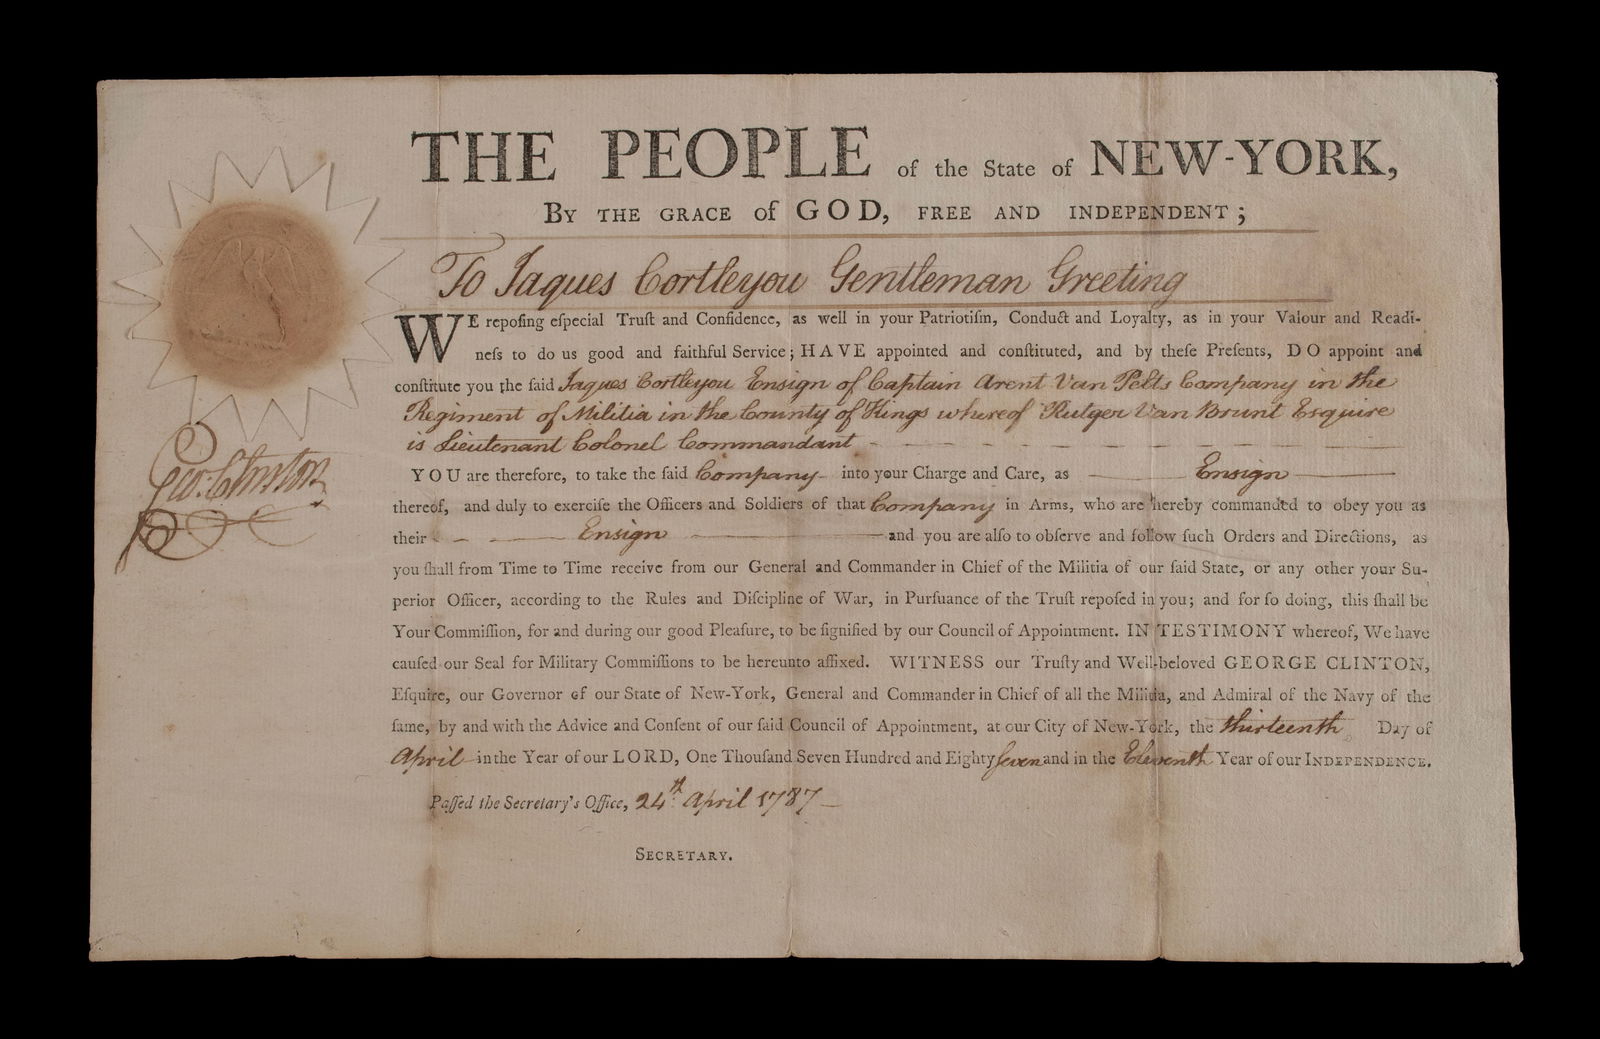 THE PEOPLE of the State of NEW-YORK,
BY THE GRACE of GOD, FREE AND INDEPENDENT;
To Jaques Cortleyou Gentleman Greeting
WE repoſing eſpecial Truſt and Confidence, as well in your Patriotiſm, Conduct and Loyalty, as in your Valour and Readi-
neſs to do us good and faithful Service; HAVE appointed and conſtituted, and by theſe Preſents, DO appoint and
conſtitute you the ſaid Jaques Cortleyou Ensign of Captain Arent Van Pelts Company in the
Regiment of Militia in the County of Kings whereof Rutger Van Brunt Esquire
is Lieutenant Colonel Commandant
YOU are therefore, to take the ſaid Company into your Charge and Care, as Ensign
thereof, and duly to exerciſe the Officers and Soldiers of that Company in Arms, who are hereby commanded to obey you as
their Ensign and you are alſo to obſerve and follow ſuch Orders and Directions, as
you ſhall from Time to Time receive from our General and Commander in Chief of the Militia of our ſaid State, or any other your Su-
perior Officer, according to the Rules and Diſcipline of War, in Purſuance of the Truſt repoſed in you; and for ſo doing, this ſhall be
Your Commiſſion, for and during our good Pleaſure, to be ſignified by our Council of Appointment. IN TESTIMONY whereof, We have
cauſed our Seal for Military Commiſſions to be hereunto affixed. WITNESS our Truſty and Well-beloved GEORGE CLINTON,
Eſquire, our Governor of our State of New-York, General and Commander in Chief of all the Militia, and Admiral of the Navy of the
ſame, by and with the Advice and Conſent of our ſaid Council of Appointment, at our City of New-York, the thirteenth Day of
April in the Year of our LORD, One Thouſand Seven Hundred and Eighty ſeven and in the Eleventh Year of our INDEPENDENCE.
Paſſed the Secretary's Office, 24th April 1787
SECRETARY.
Geo: Clinton